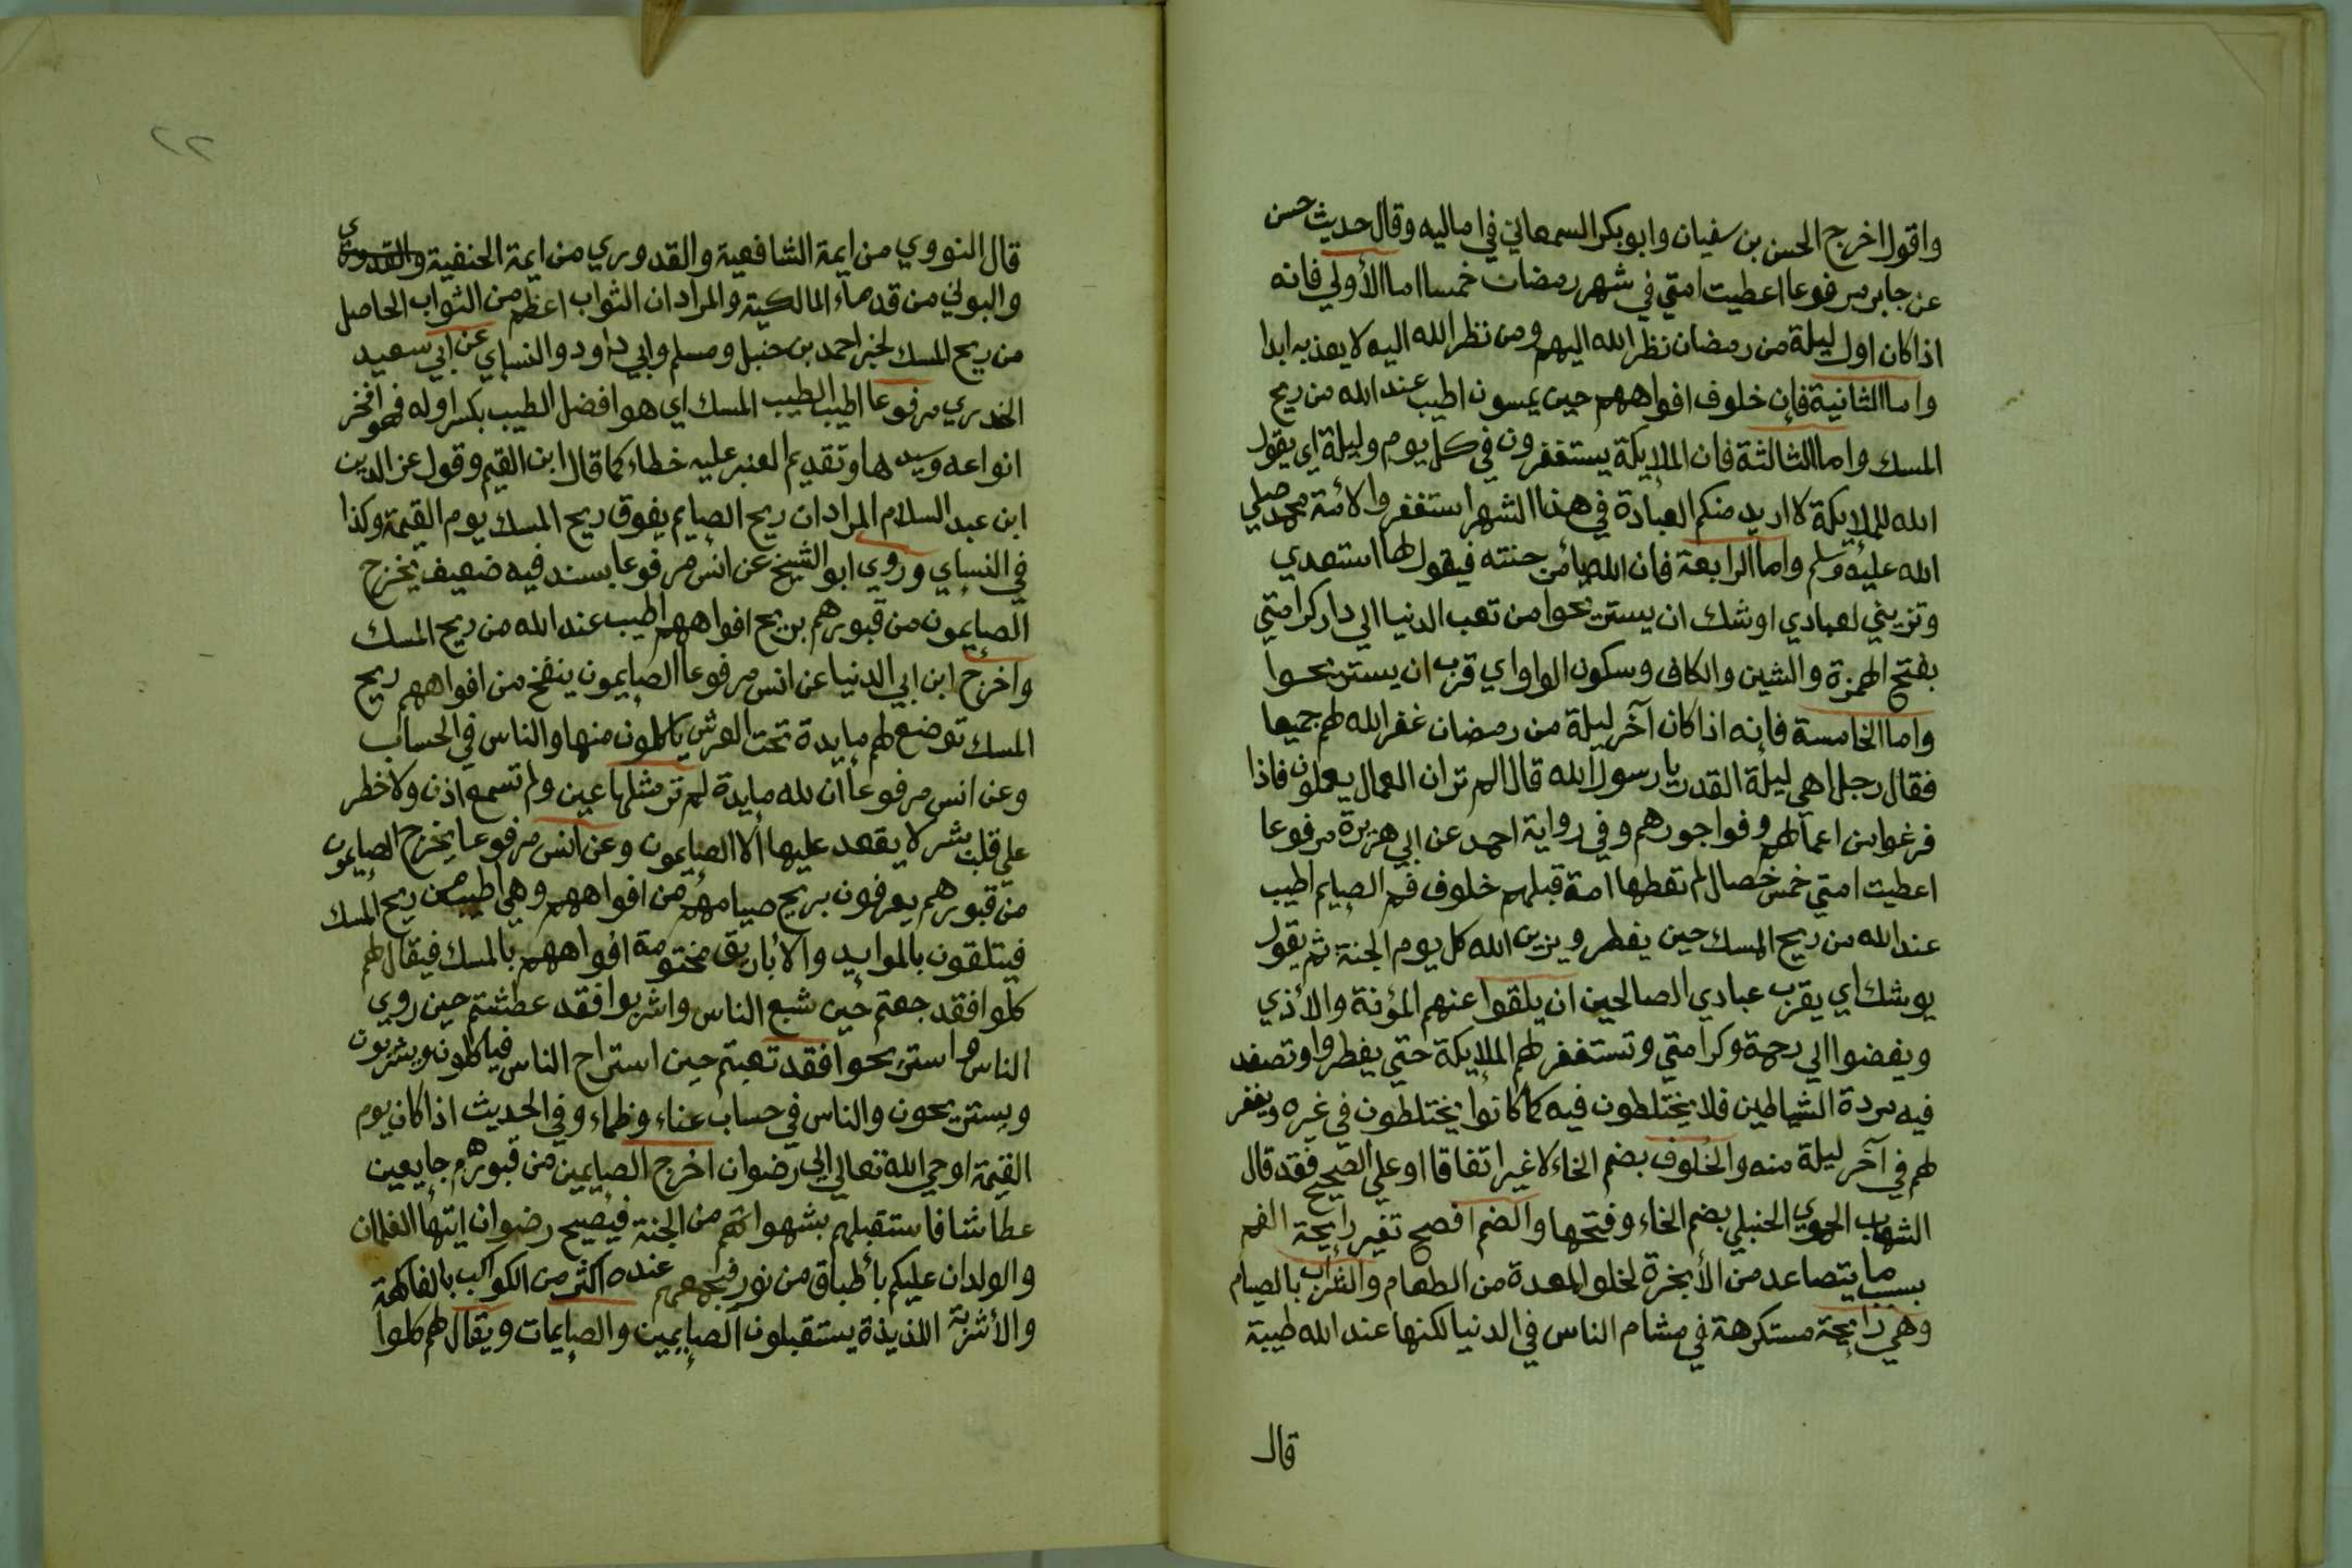 واقول اخرج الحسن بن سفيان وابو بكر السمعاني في اماليه وقال حديث حسن
عن جابر مرفوعا اعطيت امتي في شهر رمضان خمسا اما الأولي فانه
اذا كان اول ليلة من رمضان نظر الله اليهم ومن نظر الله اليه لا يعذبه ابدا
واما الثانية فإن خلوف افواههم حين يمسون اطيب عند الله من ريح
المسك واما الثالثة فان الملايكة يستغفرون في كل يوم وليلة اي يقول
الله للملايكة لا اريد منكم العبادة في هذا الشهر استغفروا لأمة محمد صلي
الله عليه وسلم واما الرابعة فان الله يأمر جنته فيقول لها استعدي
وتزيني لعبادي اوشك ان يستريحوا من تعب الدنيا الي دار كرامتي
بفتح الهمزة والشين والكاف وسكون الواو اي قرب ان يستريحوا
واما الخامسة فإنه اذا كان آخر ليلة من رمضان غفر الله لهم جميعا
فقال رجل اهي ليلة القدر يا رسول الله قال الم تر ان العمال يعملون فاذا
فرغوا من اعمالهم وفوا جورهم وفي رواية احمد عن ابي هريرة مرفوعا
اعطيت امتي خمس خصال لم تعطها امة قبلهم خلوف فم الصايم اطيب
عند الله من ريح المسك حين يفطر ويزين الله كل يوم الجنة ثم يقول
يوشك اي يقرب عبادي الصالحين ان يلقوا عنهم المؤنة والأذي
ويفضوا الي رحمة وكرامتي وتستغفر لهم الملايكة حتي يفطروا وتصفد
فيه مردة الشياطين فلا يختلطون فيه كما كانوا يختلطون في غيره ويغفر
لهم في آخر ليلة منه والخلوف بضم الخاء لا غير اتفاقا او علي الصحيح فقد قال
الشهاب الحموي الحنبلي بضم الخاء وفتحها والضم افصح تغير رايحة الفم
بسبب ما يتصاعد من الأبخرة لخلو المعدة من الطعام والشراب بالصيام
وهي رايحة مستكرهة في مشام الناس في الدنيا لكنها عند الله طيبة
قال
٢٢
قال النووي من ايمة الشافعية والقدوري من ايمة الحنفية
والبوني من قدماء المالكية والمراد ان الثواب اعظم من الثواب الحاصل
من ريح المسك لخبر احمد بن حنبل ومسلم وابي داود والنساي عن ابي سعيد
الخدري مرفوعا اطيب الطيب المسك اي هو افضل الطيب بكسر اوله فهو افخر
انواعه وسيدها وتقديم العنبر عليه خطاء كما قال ابن القيم وقول عز الدين
ابن عبد السلام المراد ان ريح الصايم يفوق ريح المسك يوم القيمة وكذا
في النساي وروي ابو الشيخ عن انس مرفوعا بسند فيه ضعيف يخرج
الصايمون من قبورهم بريح افواههم اطيب عند الله من ريح المسك
واخرج ابن ابي الدنيا عن انس مرفوعا الصايمون ينفخ من افواههم ريح
المسك توضع لهم مايدة تحت العرش ياكلون منها والناس في الحساب
وعن انس مرفوعا ان لله مايدة لم تر مثلها عين ولم تسمع اذن ولا خطر
علي قلب بشر لا يقعد عليها الا الصايمون وعن انس مرفوعا يخرج الصايمون
من قبورهم يعرفون بريح صيامهم من افواههم وهي اطيب من ريح المسك
فيتلقون بالموايد والأباريق مختومة افواههم بالمسك فيقال لهم
كلوا فقد جعتم حين شبع الناس واشربوا فقد عطشتم حين روي
الناس واستريحوا فقد تعبتم حين استراح الناس فياكلون ويشربون
ويستريحون والناس في حساب عناء وظماء وفي الحديث اذا كان يوم
القيمة اوحي الله تعالي الي رضوان اخرج الصايمين من قبورهم جايعين
عطاشا فاستقبلهم بشهواتهم من الجنة فيصيح رضوان ايتها الغلمان
والولدان عليكم بأطباق من نور فيجمعهم عنده اكثر من الكواكب بالفاكهة
والأشربة اللذيذة يستقبلون الصايمين والصايمات ويقال لهم كلوا